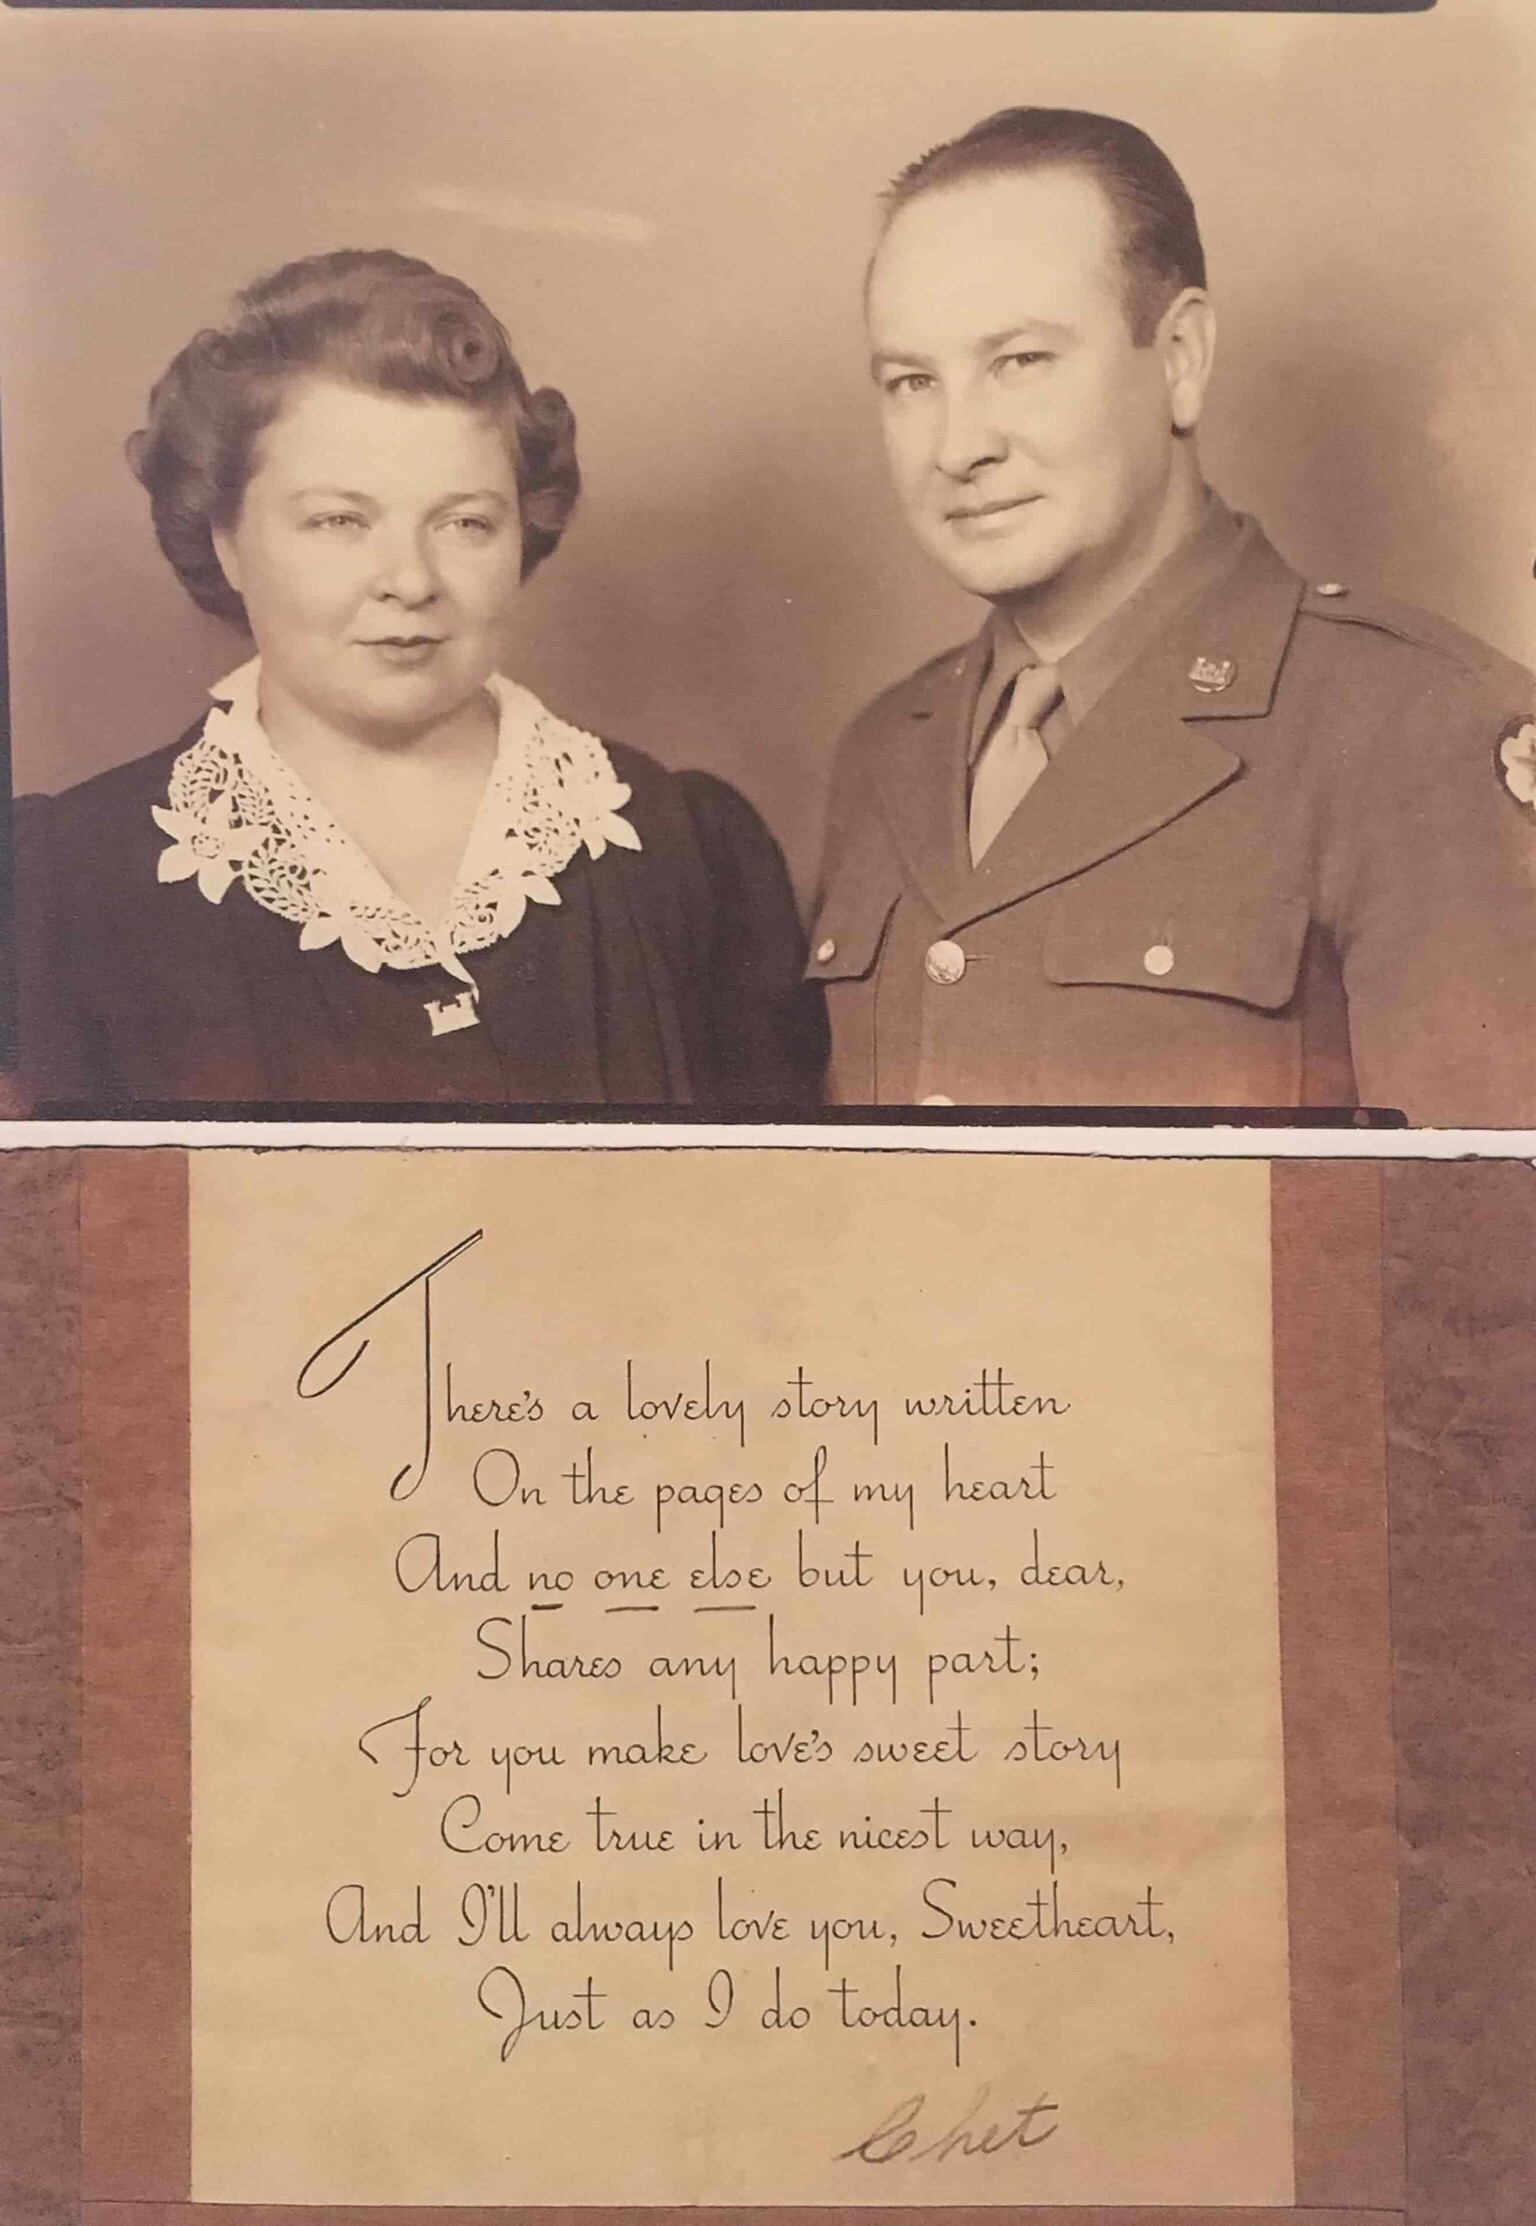 There's a lovely story written
On the pages of my heart
And no one else but you, dear,
Shares any happy part;
For you make love's sweet story
Come true in the nicest way,
And I'll always love you, Sweetheart,
Just as I do today.
Chet